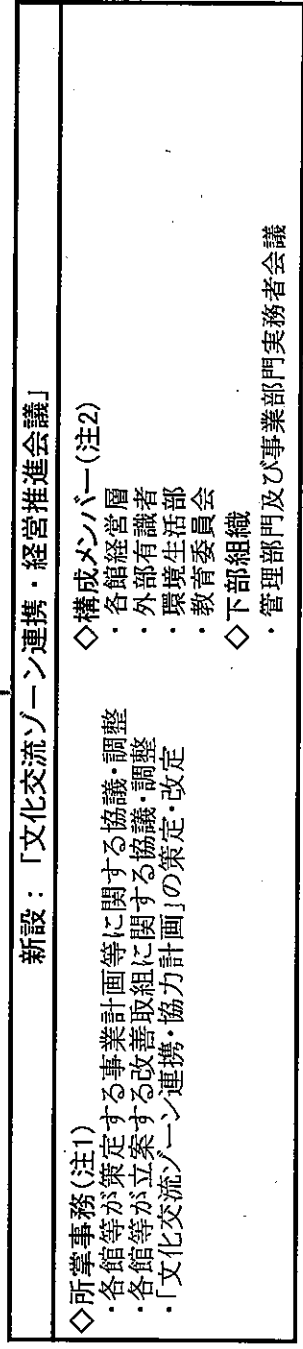 新設：「文化交流ゾーン連携・経営推進会議」
◇所掌事務(注1)
・各館等が策定する事業計画等に関する協議・調整
・各館等が立案する改善取組に関する協議・調整
・「文化交流ゾーン連携・協力計画」の策定・改定
◇構成メンバー(注2)
・各館経営層
・外部有識者
・環境生活部
・教育委員会
◇下部組織
・管理部門及び事業部門実務者会議